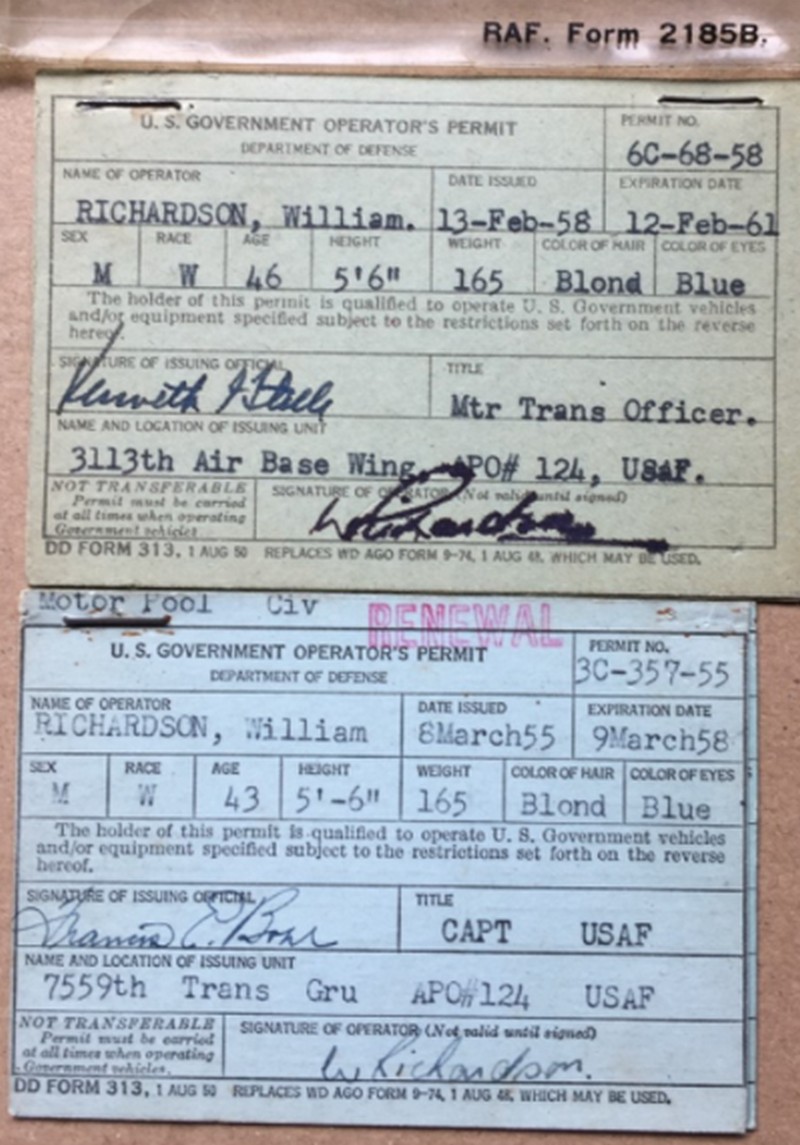 RAF. Form 2185B.
U. S. GOVERNMENT OPERATOR'S PERMIT
DEPARTMENT OF DEFENSE
PERMIT NO.
6C-68-58
NAME OF OPERATOR
RICHARDSON, William.
DATE ISSUED
13-Feb-58
EXPIRATION DATE
12-Feb-61
SEX RACE AGE HEIGHT WEIGHT COLOR OF HAIR COLOR OF EYES
M W 46 5'6" 165 Blond Blue
The holder of this permit is qualified to operate U. S. Government vehicles
and/or equipment specified subject to the restrictions set forth on the reverse
hereof.
SIGNATURE OF ISSUING OFFICIAL
Kenneth
TITLE
Mtr Trans Officer.
NAME AND LOCATION OF ISSUING UNIT
3113th Air Base Wing, APO# 124, USAF.
NOT TRANSFERABLE
Permit must be carried
at all times when operating
Government vehicles
SIGNATURE OF OPERATOR (Not valid until signed)
W Richardson
DD FORM 313, 1 AUG 50 REPLACES WD AGO FORM 9-74, 1 AUG 48, WHICH MAY BE USED.
Motor Pool Civ
RENEWAL
U. S. GOVERNMENT OPERATOR'S PERMIT
DEPARTMENT OF DEFENSE
PERMIT NO.
3C-357-55
NAME OF OPERATOR
RICHARDSON, William
DATE ISSUED
8March55
EXPIRATION DATE
9March58
SEX RACE AGE HEIGHT WEIGHT COLOR OF HAIR COLOR OF EYES
M W 43 5'-6" 165 Blond Blue
The holder of this permit is qualified to operate U. S. Government vehicles
and/or equipment specified subject to the restrictions set forth on the reverse
hereof.
SIGNATURE OF ISSUING OFFICIAL
Francis E.
TITLE
CAPT USAF
NAME AND LOCATION OF ISSUING UNIT
7559th Trans Gru APO#124 USAF
NOT TRANSFERABLE
Permit must be carried
at all times when operating
Government vehicles.
SIGNATURE OF OPERATOR (Not valid until signed)
W Richardson.
DD FORM 313, 1 AUG 50 REPLACES WD AGO FORM 9-74, 1 AUG 48, WHICH MAY BE USED.